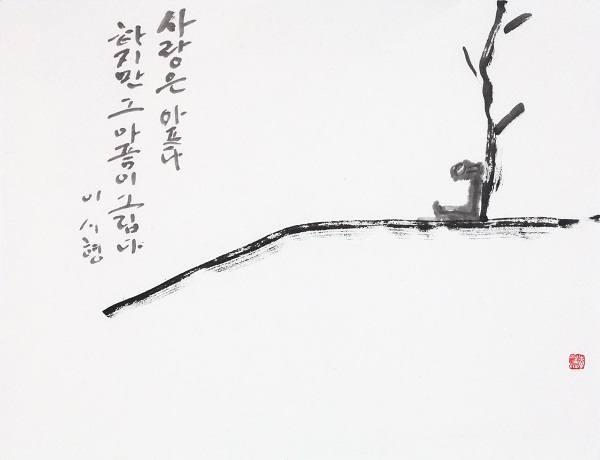 사랑은 아프다
하지만 그 아픔이 그립다
이시형